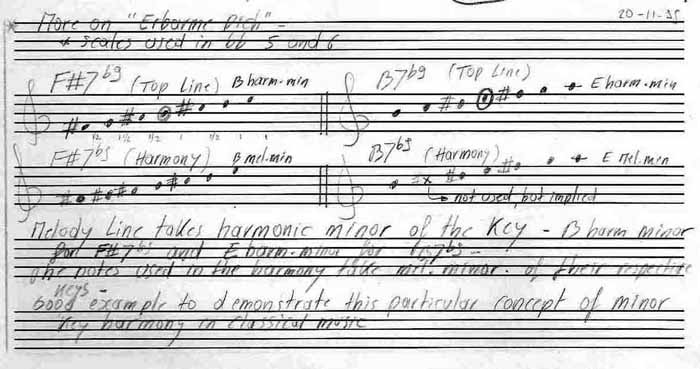 20-11-95
* More on "Erbarme Dich" -
* scales used in bb 5 and 6
F#7b9 (Top Line) B harm.min
B7b9 (Top Line) E harm.min
1/2 1 1/2 1/2 1 1/2 1 1
F#7b9 (Harmony) B mel.min
B7b9 (Harmony) E mel.min
not used, but implied
Melody Line takes harmonic minor of the Key - B harm minor
for F#7b9 and E harm.minor for B7b9 -
The notes used in the harmony take mel. minor. of their respective
keys -
Good example to demonstrate this particular concept of minor
key harmony in classical music